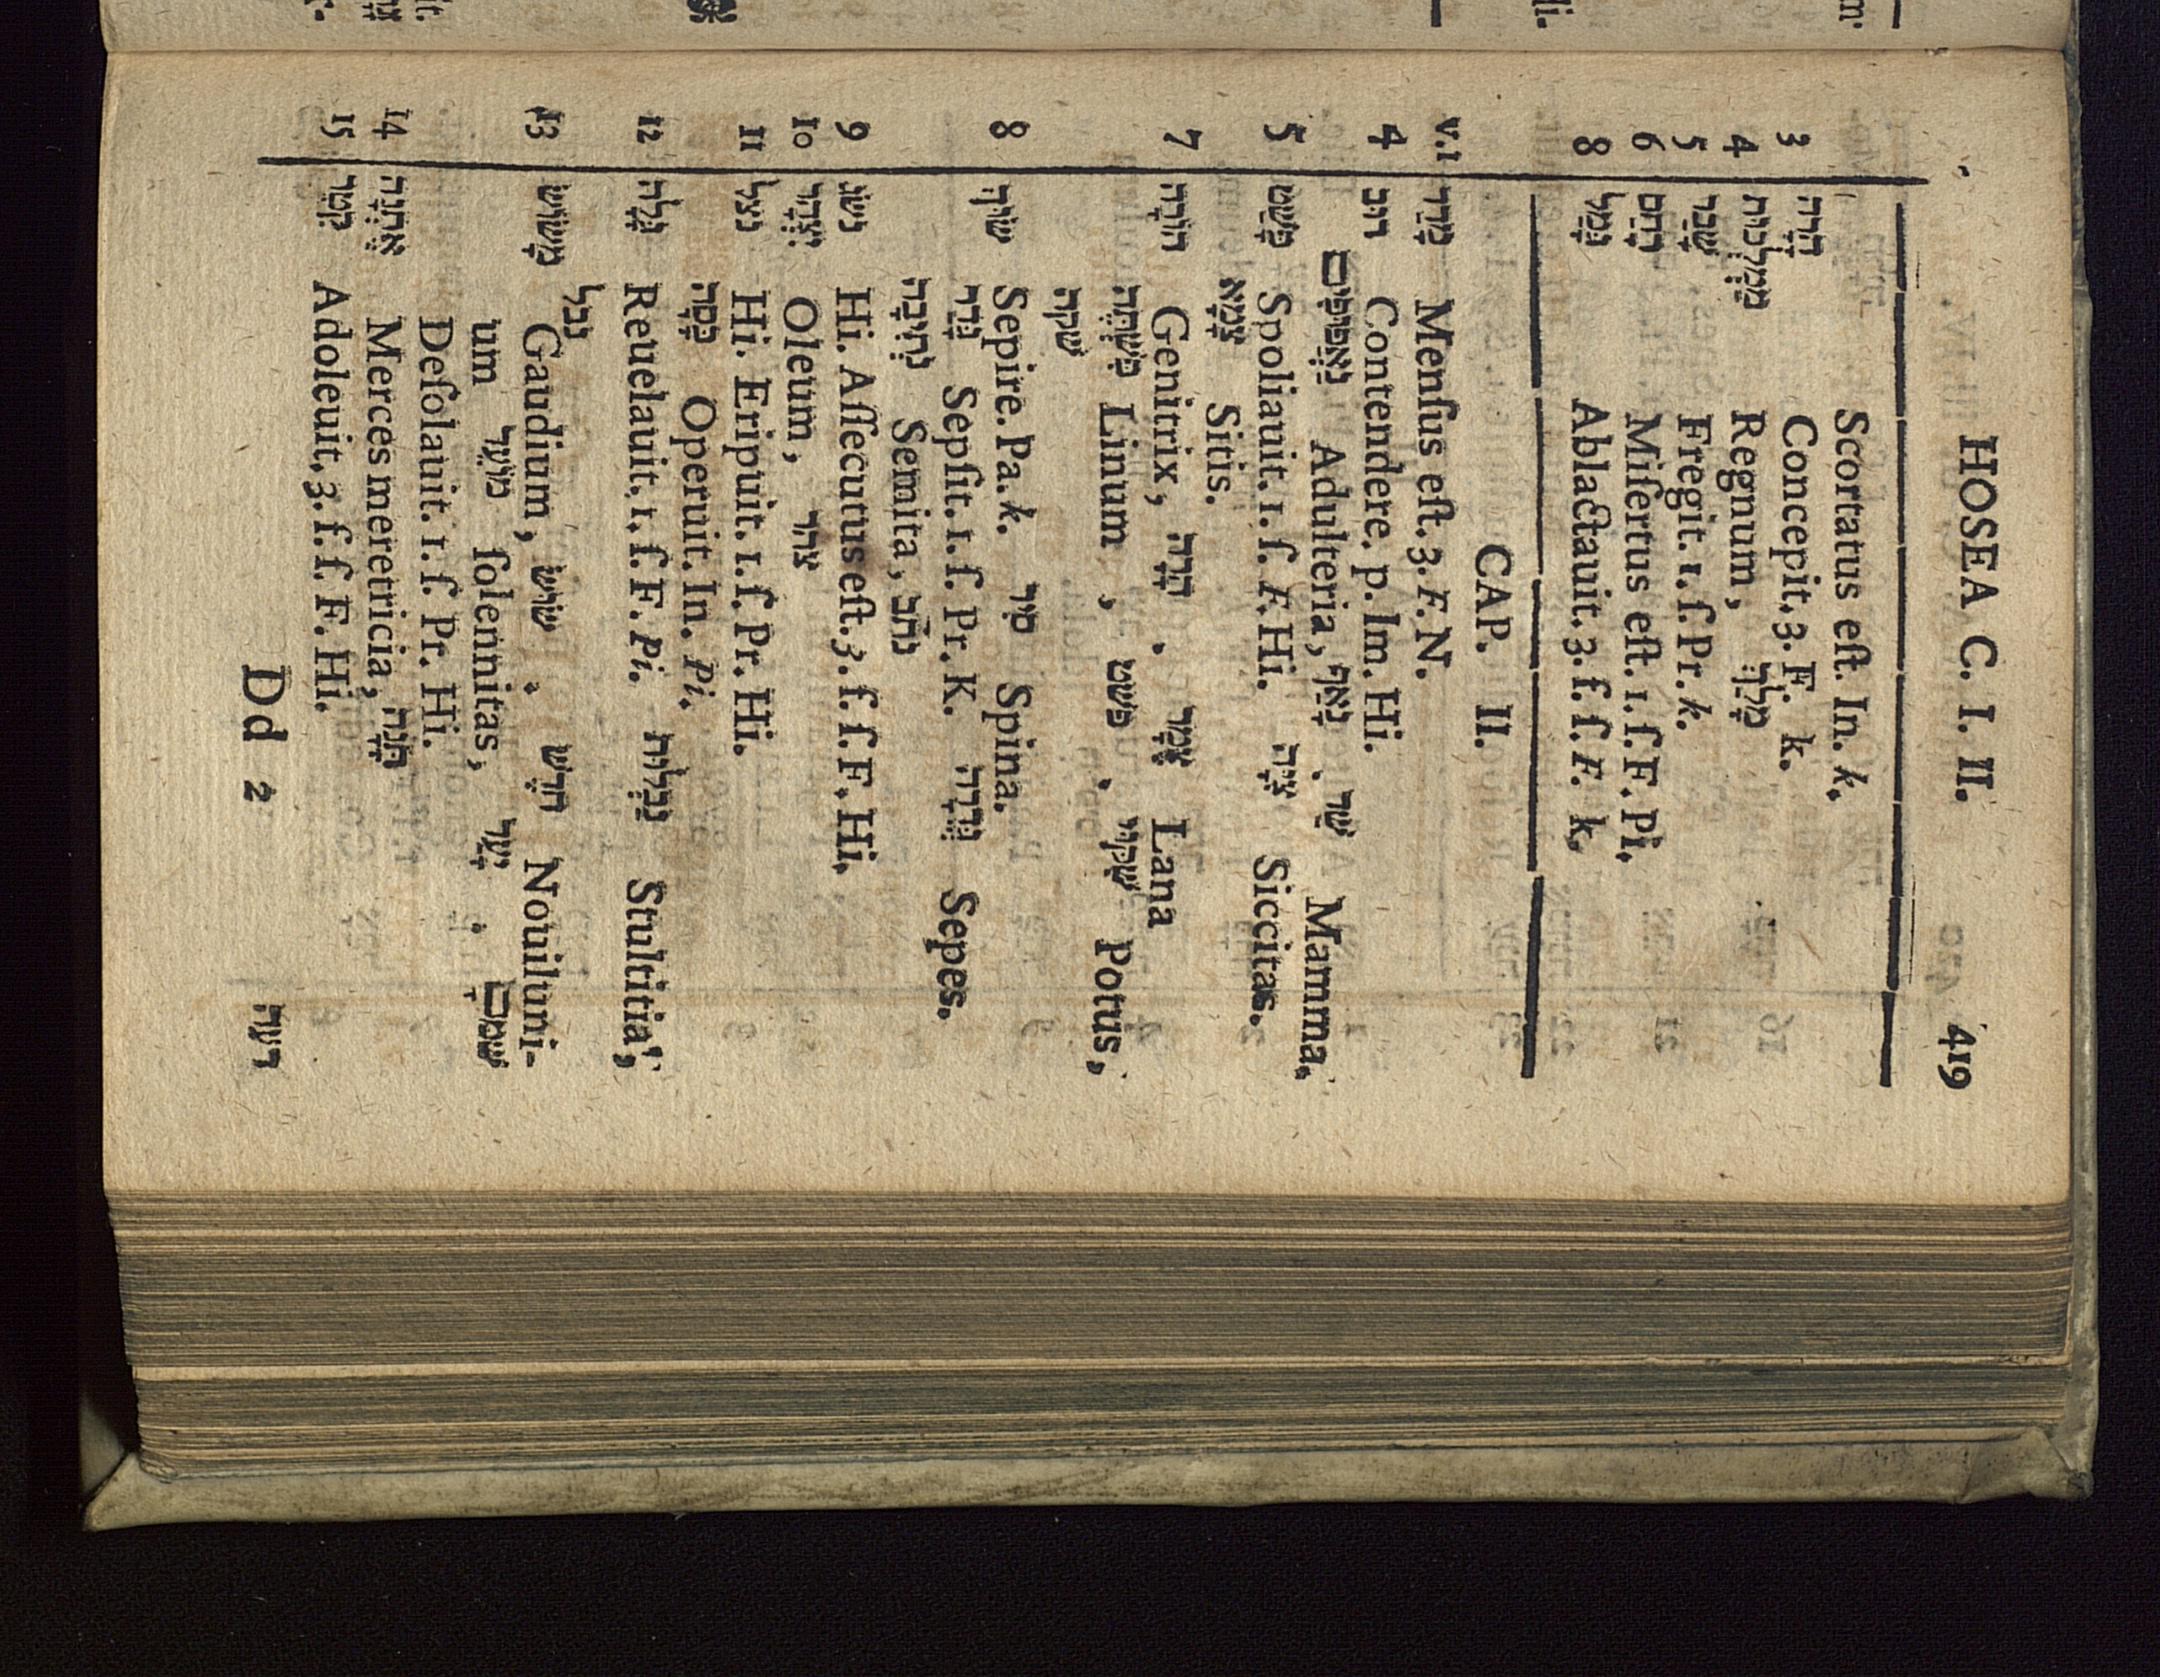 HOSEA C. I. II. 419
Scortatus eſt. In. k.
3 הָרָה Concepit. 3. F. k.
4 מַמְלְכוּת Regnum, מָלַךְ
5 שָׁבַר Fregit. 1. ſ. Pr. k.
6 רָחַם Miſertus eſt. 1. ſ. F. Pi.
8 גָּמַל Ablactauit. 3. ſ. ſ. F. k.
CAP. II.
v.1 מָדַד Menſus eſt. 3. F. N.
4 רוּב Contendere. p. Im. Hi.
נַאֲפוּפִים Adulteria, נָאַף . שַׁד Mamma,
5 פָּשַׁט Spoliauit. 1. ſ. F. Hi. צִיָּה Siccitas.
צָמָא Sitis.
7 הוֹרָה Genitrix, הָרָה . צֶמֶר Lana
פִּשְׁתָּה Linum, פשט . שִׁקּוּי Potus,
שקה
8 שׂוּךְ Sepire. Pa. k. סִיר Spina.
גָּדַר Sepſit. 1. ſ. Pr. K. גְּדֵרָה Sepes.
נְתִיבָה Semita, נתב
9 נשׂג Hi. Aſſecutus eſt. 3. ſ. ſ. F. Hi.
10 יִצְהָר Oleum, צהר
11 נצל Hi. Eripuit. 1. ſ. Pr. Hi.
כָּסָה Operuit. In. Pi.
12 גָּלָה Reuelauit. 1. ſ. F. Pi. נַבְלוּת Stultitia,
נבל
13 מָשׂוֹשׂ Gaudium, שׂוּשׂ . חֹדֶשׁ Nouiluni-
um מוֹעֵד ſolennitas, יָעַד . שׁמם
Deſolauit. 1. ſ. Pr. Hi.
14 אֶתְנָה Merces meretricia, תָּנָה
15 קִטֵּר Adoleuit, 3. ſ. ſ. F. Hi.
Dd 2 רעה